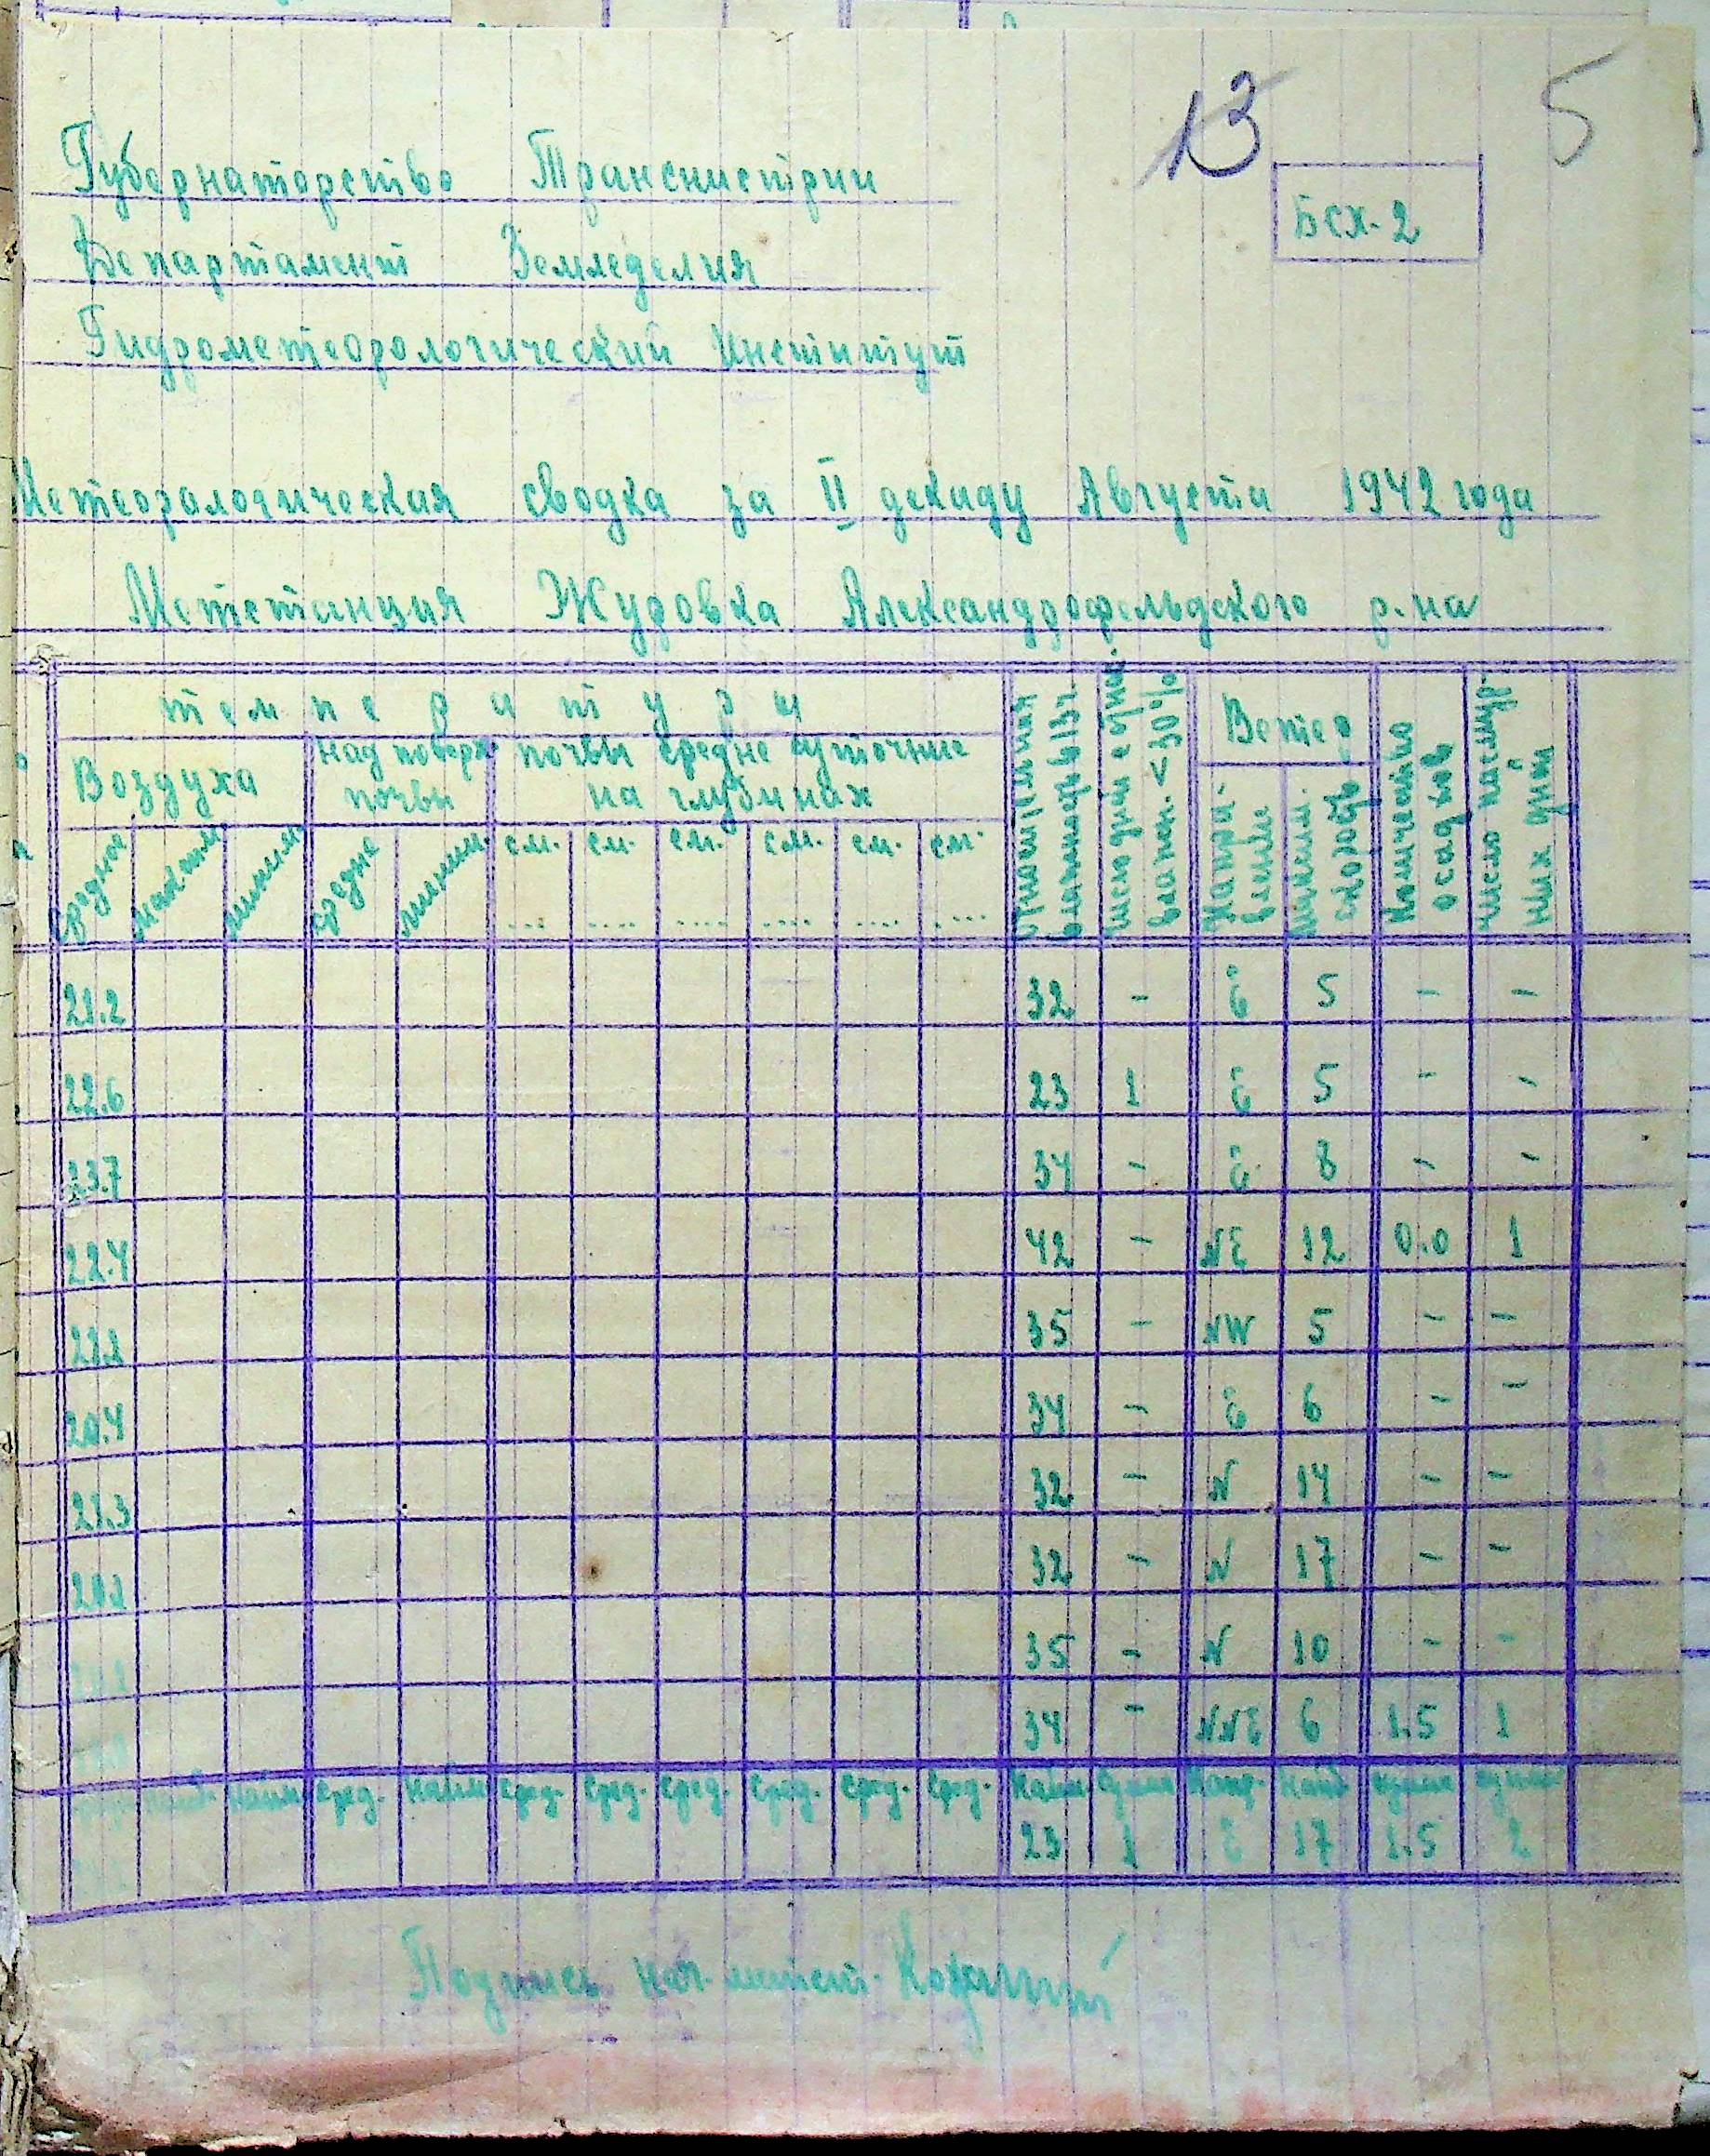 13 5
Губернаторство Транснистрии
БСХ-2
Департамент Земледелия
Гидрометеорологический Институт
Метеоралогическая сводка за II декаду Августа 1942 года
Метстанция Журовка Александрофельдского р-на
температура
Воздуха
над поверх почвы
почвы средне суточные на глубинах
Относительная влажность в 13 ч.
число дней с относ. влажн. < 30%
Ветер
Направление
максим. скорость
Количество осадков
число пасмурных дней
средняя максим миним средне миним. см. см. см. см. см. см.
21.2 32 - E 5 - -
22.6 23 1 E 5 - -
23.7 34 - E 8 - -
22.4 42 - NE 12 0.0 1
21.1 35 - NW 5 - -
20.4 34 - E 6 - -
21.3 32 - N 14 - -
20.1 32 - N 17 - -
35 - N 10 - -
34 - NNE 6 1.5 1
наим сред. наим сред. сред. сред. сред. сред. сред. наим сумма сумма сумма
23 1 E 17 1.5 2
Подпись нач. метст.